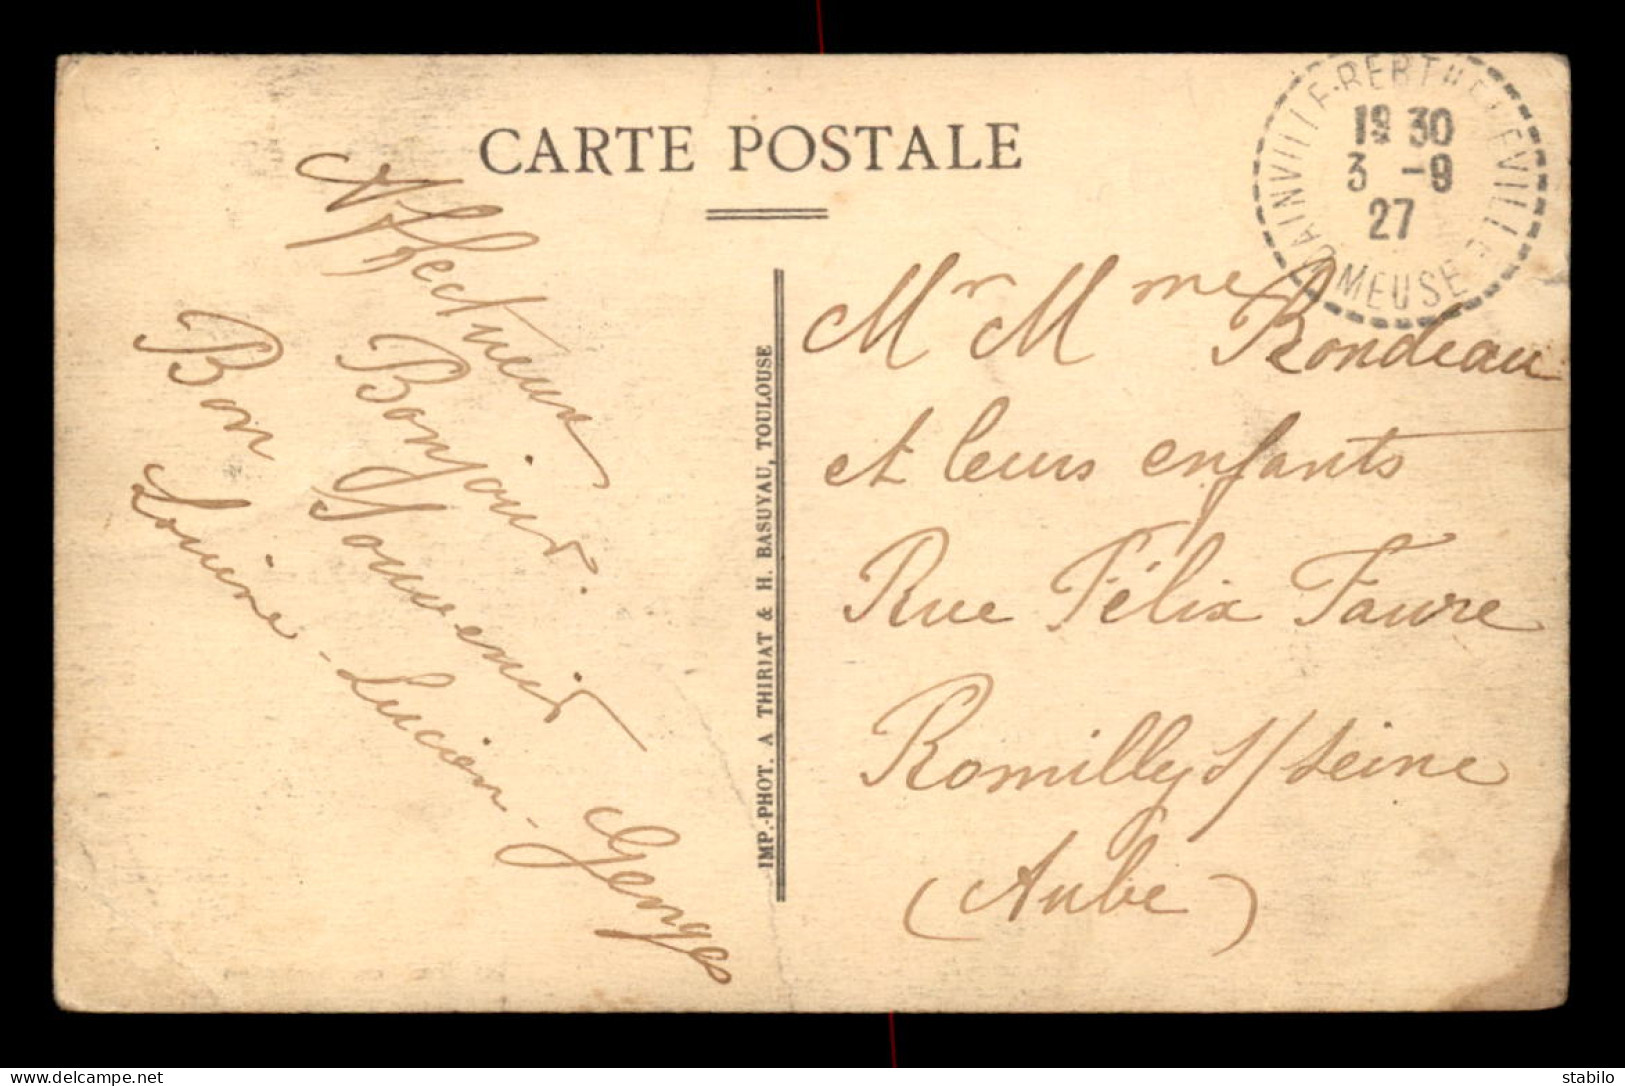 CARTE POSTALE
Affectueux
Bonjour.
Bon Souvenir
Louise - Lucien - Georges
IMP.-PHOT. A THIRIAT & H. BASUYAU, TOULOUSE
DAINVILLE-BERTHELEVILLE
19 30
3 -9
27
MEUSE
Mr Mme Rondeau
et leurs enfants
Rue Félix Faure
Romilly s/ seine
(Aube)
delcampe.net
stabilo